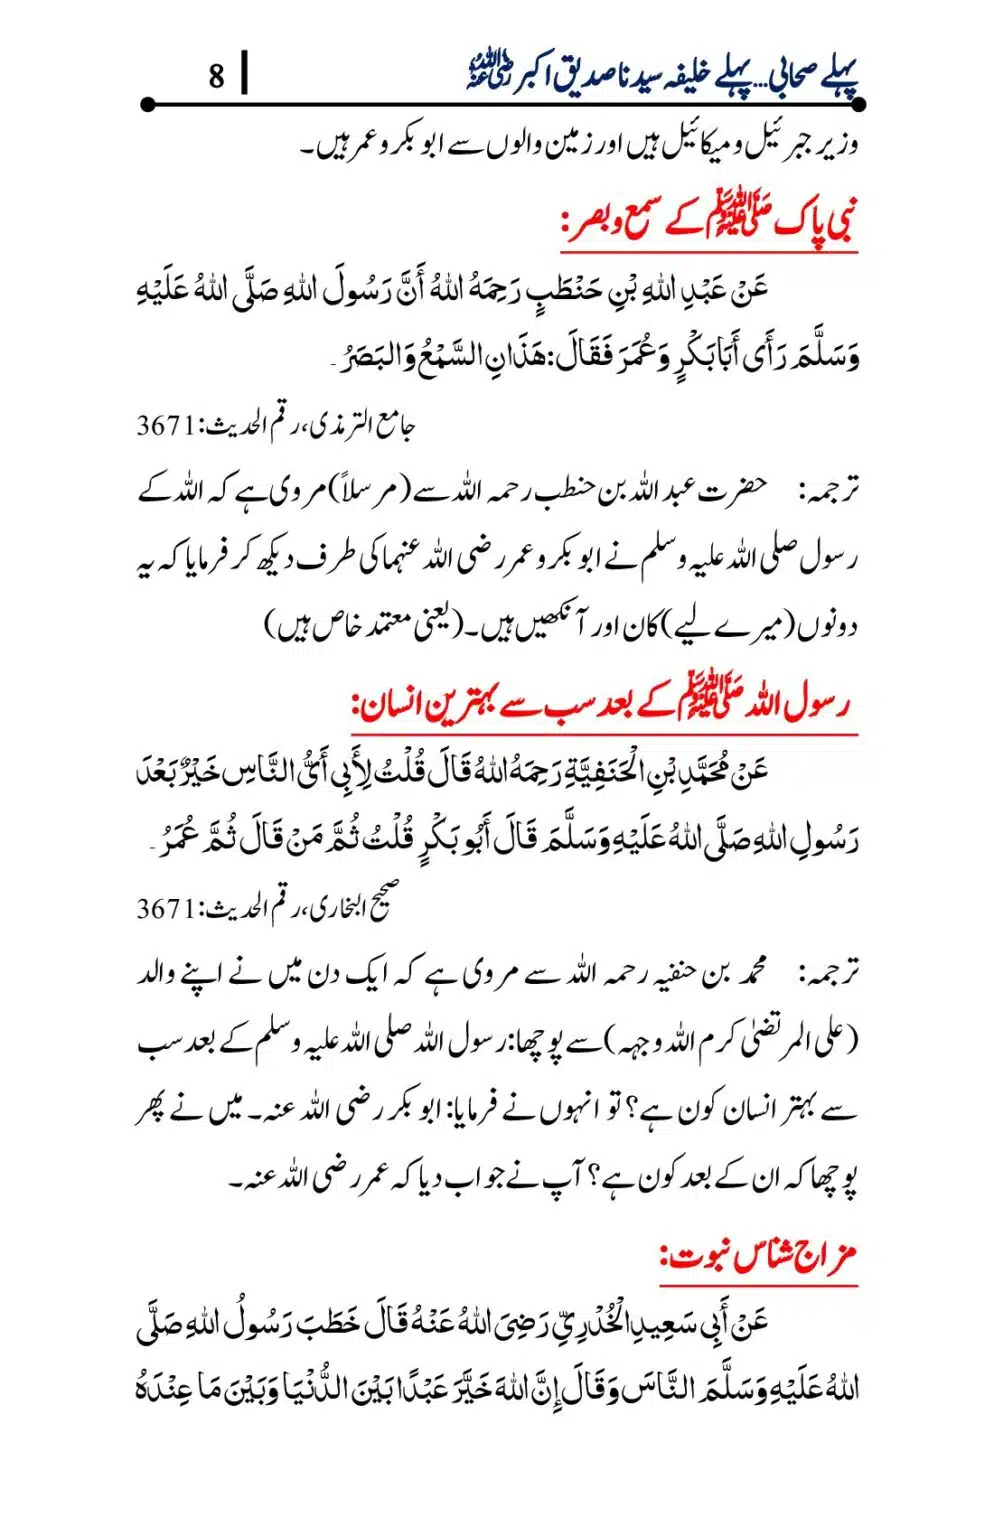 پہلے صحابی...پہلے خلیفہ سیدنا صدیق اکبر رضی اللہ عنہ 8
وزیر جبرئیل و میکائیل ہیں اور زمین والوں سے ابو بکر و عمر ہیں۔
نبی پاک ﷺ کے سمع و بصر:
عَنْ عَبْدِ اللهِ بْنِ حَنْطَبٍ رَحِمَهُ اللهُ أَنَّ رَسُولَ اللهِ صَلَّى اللهُ عَلَيْهِ
وَسَلَّمَ رَأَى أَبَا بَكْرٍ وَعُمَرَ فَقَالَ: هَذَانِ السَّمْعُ وَالبَصَرُ۔
جامع الترمذی، رقم الحدیث: 3671
ترجمہ: حضرت عبد اللہ بن حنطب رحمہ اللہ سے (مرسلاً) مروی ہے کہ اللہ کے
رسول صلی اللہ علیہ وسلم نے ابو بکر و عمر رضی اللہ عنہما کی طرف دیکھ کر فرمایا کہ یہ
دونوں (میرے لیے) کان اور آنکھیں ہیں۔ (یعنی معتمد خاص ہیں)
رسول اللہ ﷺ کے بعد سب سے بہترین انسان:
عَنْ مُحَمَّدِ بْنِ الْحَنَفِيَّةِ رَحِمَهُ اللهُ قَالَ قُلْتُ لِأَبِي أَيُّ النَّاسِ خَيْرٌ بَعْدَ
رَسُولِ اللهِ صَلَّى اللهُ عَلَيْهِ وَسَلَّمَ قَالَ أَبُو بَكْرٍ قُلْتُ ثُمَّ مَنْ قَالَ ثُمَّ عُمَرُ۔
صحیح البخاری، رقم الحدیث: 3671
ترجمہ: محمد بن حنفیہ رحمہ اللہ سے مروی ہے کہ ایک دن میں نے اپنے والد
(علی المرتضیٰ کرم اللہ وجہہ) سے پوچھا: رسول اللہ صلی اللہ علیہ وسلم کے بعد سب
سے بہتر انسان کون ہے؟ تو انہوں نے فرمایا: ابو بکر رضی اللہ عنہ۔ میں نے پھر
پوچھا کہ ان کے بعد کون ہے؟ آپ نے جواب دیا کہ عمر رضی اللہ عنہ۔
مزاج شناس نبوت:
عَنْ أَبِي سَعِيدِ الْخُدْرِيِّ رَضِيَ اللهُ عَنْهُ قَالَ خَطَبَ رَسُولُ اللهِ صَلَّى
اللهُ عَلَيْهِ وَسَلَّمَ النَّاسَ وَقَالَ إِنَّ اللهَ خَيَّرَ عَبْدًا بَيْنَ الدُّنْيَا وَبَيْنَ مَا عِنْدَهُ